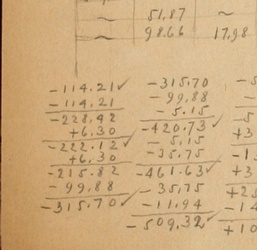 ~ 51.87 ~
~ 98.66 17.98
-114.21✓
-114.21
-228.42
+6.30
-222.12✓
+6.30
-215.82
-99.88
-315.70✓
-315.70
-99.88
-5.15
-420.73✓
-5.15
-35.75
-461.63✓
-35.75
-11.94
-509.32✓
-5
+3
-1
+3
+2
-1
+10